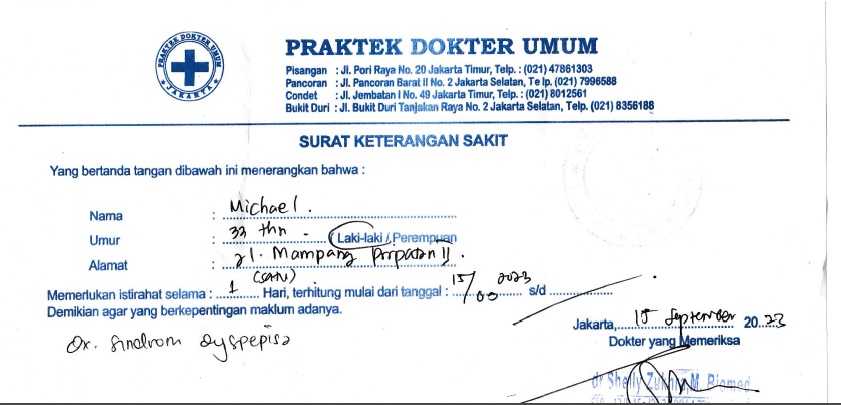 PRAKTEK DOKTER UMUM
JAKARTA
PRAKTEK DOKTER UMUM
Pisangan : Jl. Pori Raya No. 20 Jakarta Timur, Telp. : (021) 47861303
Pancoran : Jl. Pancoran Barat II No. 2 Jakarta Selatan, Te lp. (021) 7996588
Condet : Jl. Jembatan I No. 49 Jakarta Timur, Telp. : (021) 8012561
Bukit Duri : Jl. Bukit Duri Tanjakan Raya No. 2 Jakarta Selatan, Telp. (021) 8356188
SURAT KETERANGAN SAKIT
Yang bertanda tangan dibawah ini menerangkan bahwa :
Nama : Michael.
Umur : 33 thn. / Laki-laki / Perempuan
Alamat : Jl. Mampang Prapatan II.
(satu)
Memerlukan istirahat selama : 1 Hari, terhitung mulai dari tanggal : 15/09 2023 s/d
Demikian agar yang berkepentingan maklum adanya.
Jakarta, 15 September 2023
Dx. Sindrom dyspepisa
Dokter yang Memeriksa
dr Shelly Zukhra, M. Biomed